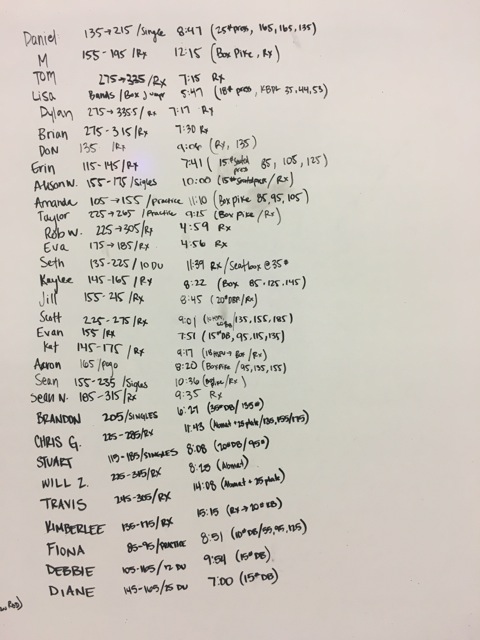 Daniel 135→215/single 8:47 (25# press, 165, 165, 135)
M 155-195/Rx 12:15 (Box Pike, Rx)
Tom 275→335/Rx 7:15 Rx
Lisa Bands/Box jumps 5:47 (18# press, KBDL 35,44,53)
Dylan 275→3355/Rx 7:17 Rx
Brian 275-315/Rx 7:30 Rx
Don 135 /Rx 9:06 (Rx, 135)
Erin 115-145/Rx 7:41 (15# press 85, 105, 125)
Alison W. 155-175/Sigles 10:00 (15# /Rx)
Amanda 105→155/practice 11:10 (Box pike 85,95,105)
Taylor 225→265/Practice 9:25 (Box Pike/Rx)
Rob W. 225→305/Rx 4:59 Rx
Eva 175→185/Rx 4:56 Rx
Seth 135-225/10 DU 11:39 Rx/Seatbox@35#
Kaylee 145-165/Rx 8:22 (Box 85,125,145)
Jill 155-215/Rx 8:45 (20# DBP/Rx)
Scott 225-275/Rx 9:01 (135,155,185)
Evan 155/Rx 7:51 (15# DB, 95,115,135)
Kat 145-175/Rx 9:17 (Box/Rx)
Aaron 165/pogo 8:20 (Box Pike/95,135,155)
Sean 155-235/Sigles 10:36 (/Rx)
Sean N. 185-315/Rx 9:35 Rx
BRANDON 205/SINGLES 6:27 (35# DB/135#)
CHRIS G. 225-285/RX 11:43 (Abmat+25 plate/135,155/175)
STUART 115-185/SINGLES 8:08 (20# DB/95#)
WILL Z. 225-315/RX 8:20 (Abmat)
TRAVIS 245-305/RX 14:08 (Abmat+25 plate)
KIMBERLEE 135-175/RX 15:15 (Rx→20# KB)
FIONA 85-95/PRACTICE 8:51 (10# DB/55,95,125)
DEBBIE 105-165/12 DU 9:54 (15# DB)
DIANE 145-165/25 DU 7:00 (15# DB)